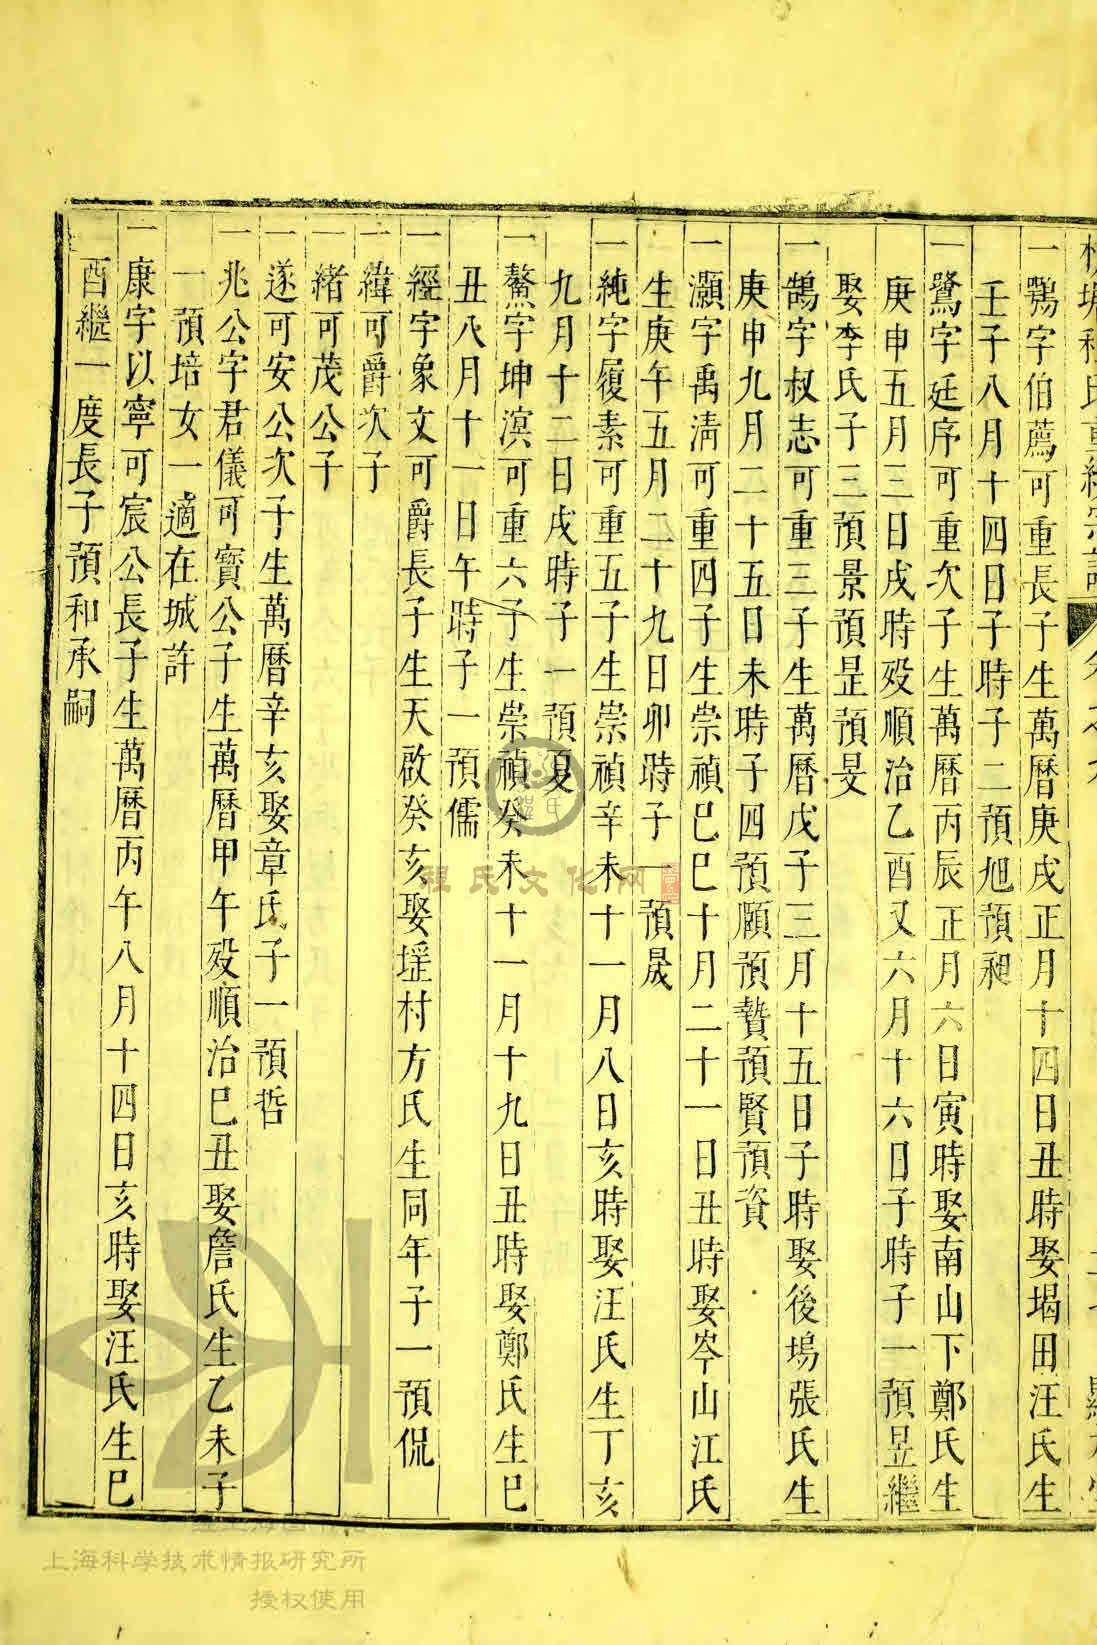 一鶚字伯薦可重長子生萬曆庚戌正月十四日丑時娶堨田汪氏生
壬子八月十四日子時子二預旭預昶
一鷺字廷序可重次子生萬曆丙辰正月六日寅時娶南山下鄭氏生
庚申五月三日戌時殁順治乙酉又六月十六日子時子一預昱繼
娶李氏子三預景預昰預旻
一鵠字叔志可重三子生萬曆戊子三月十五日子時娶後塢張氏生
庚申九月二十五日未時子四預願預贊預賢預資
一灝字禹清可重四子生崇禎巳巳十月二十一日丑時娶岑山江氏
生庚午五月二十九日卯時子一預晟
一純字履素可重五子生崇禎辛未十一月八日亥時娶汪氏生丁亥
九月十二日戌時子一預夏
一鰲字坤溟可重六子生崇禎癸未十一月十九日丑時娶鄭氏生巳
丑八月十一日午時子一預儒
一經字象文可爵長子生天啟癸亥娶𡏖村方氏生同年子一預侃
一緯可爵次子
一緒可茂公子
一遂可安公次子生萬曆辛亥娶章氏子一預哲
一兆公字君儀可寳公子生萬曆甲午殁順治巳丑娶詹氏生乙未子
一預培女一適在城許
一康字以寧可宸公長子生萬曆丙午八月十四日亥時娶汪氏生巳
酉繼一度長子預和承嗣
程氏文化网
上海科学技术情报研究所
授权使用